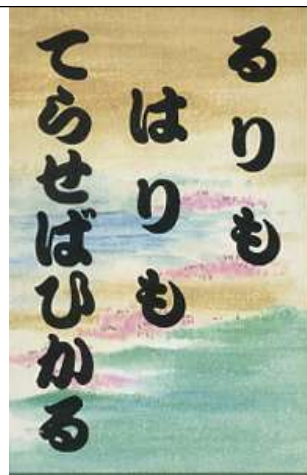 るりも
はりも
てらせばひかる